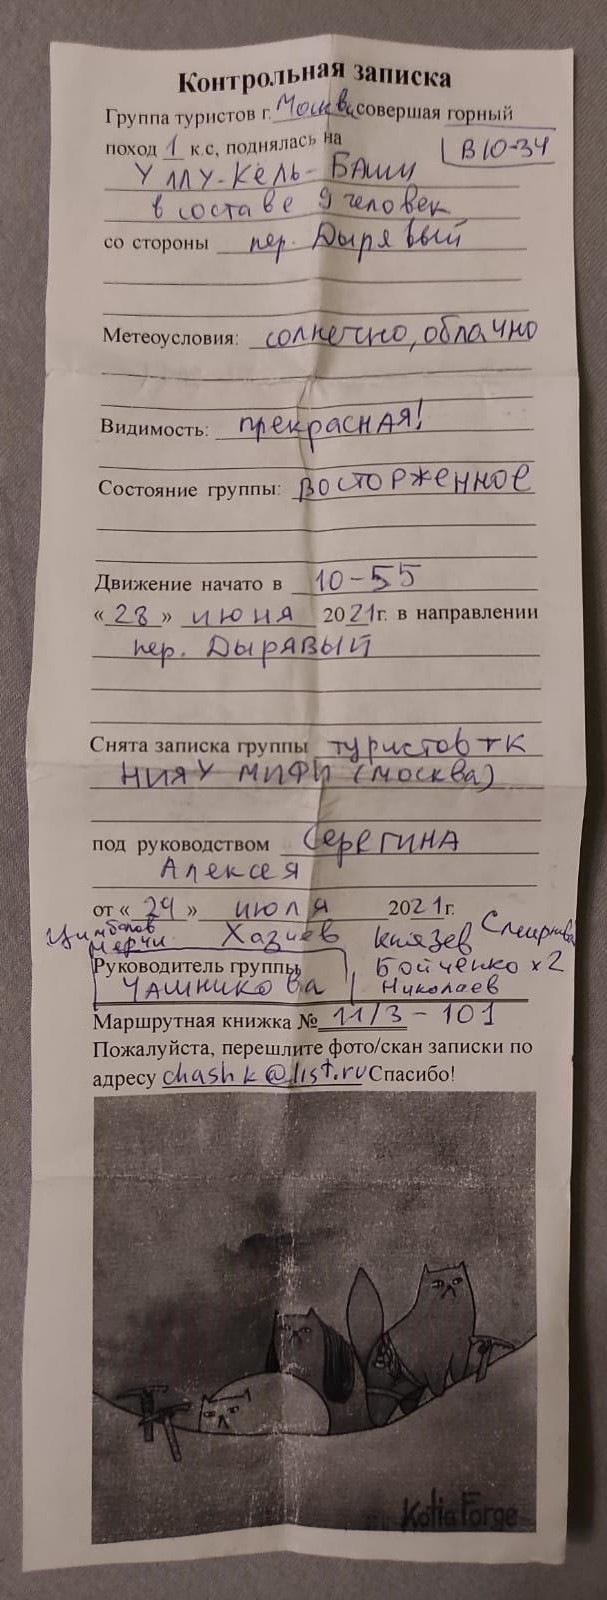 Контрольная записка
Группа туристов г. Москвы совершая горный
поход 1 к.с, поднялась на
В 10-34
Уллу-Кёль-Баши
в составе 9 человек
со стороны пер. Дырявый
Метеоусловия: солнечно, облачно
Видимость: прекрасная!
Состояние группы: восторженное
Движение начато в 10-55
«28» июня 2021г. в направлении
пер. Дырявый
Снята записка группы туристов тк
НИЯУ МИФИ (Москва)
под руководством Серегина
Алексея
от «24» июля 2021г.
Цимбалов Хазиев Князев
Руководитель группы Бойченко х2
Чашникова Николаев
Маршрутная книжка № 11/3-101
Пожалуйста, перешлите фото/скан записки по
адресу chashk@list.ru Спасибо!
Katia Forge